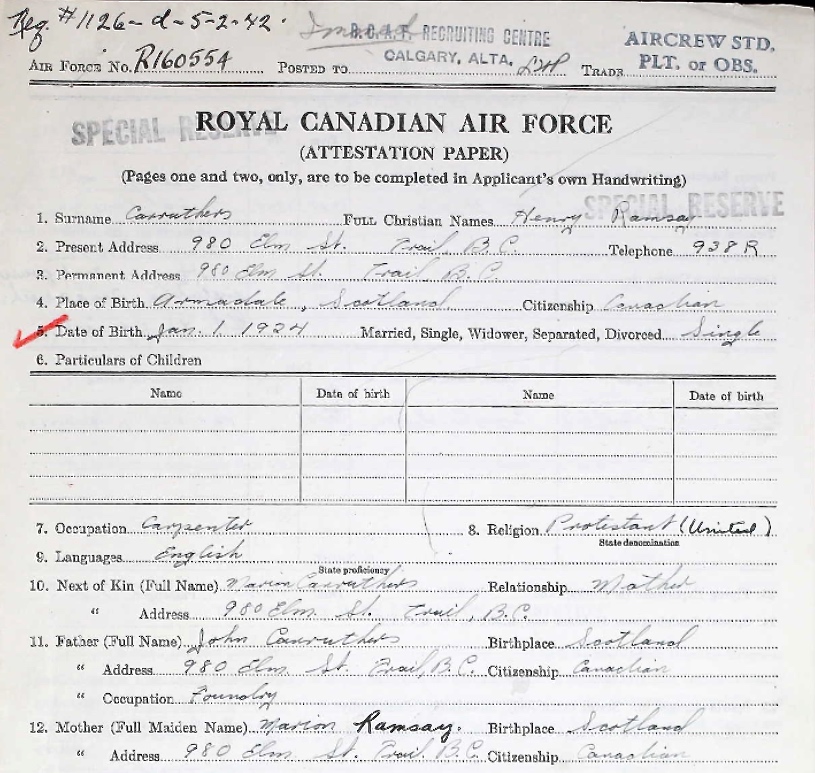 Reg. #1126-d-5-2-42.
R.C.A.F. RECRUITING CENTRE
CALGARY, ALTA.
AIRCREW STD,
PLT. or OBS.
AIR FORCE NO. R160554 POSTED TO TRADE
SPECIAL RESERVE
ROYAL CANADIAN AIR FORCE
(ATTESTATION PAPER)
(Pages one and two, only, are to be completed in Applicant's own Handwriting)
SPECIAL RESERVE
1. Surname Carruthers FULL Christian Names Henry Ramsay
2. Present Address 980 Elm St. Trail B.C. Telephone 938R
3. Permanent Address 980 Elm St. Trail B.C.
4. Place of Birth Armadale, Scotland Citizenship Canadian
5. Date of Birth Jan. 1 1924 Married, Single, Widower, Separated, Divorced Single
6. Particulars of Children
Name Date of birth Name Date of birth
7. Occupation Carpenter 8. Religion Protestant (United)
State denomination
9. Languages English
State proficiency
10. Next of Kin (Full Name) Marion Carruthers Relationship Mother
" Address 980 Elm St. Trail, B.C.
11. Father (Full Name) John Carruthers Birthplace Scotland
" Address 980 Elm St. Trail, B.C. Citizenship Canadian
" Occupation Foundry
12. Mother (Full Maiden Name) Marion Ramsay. Birthplace Scotland
" Address 980 Elm St. Trail B.C. Citizenship Canadian